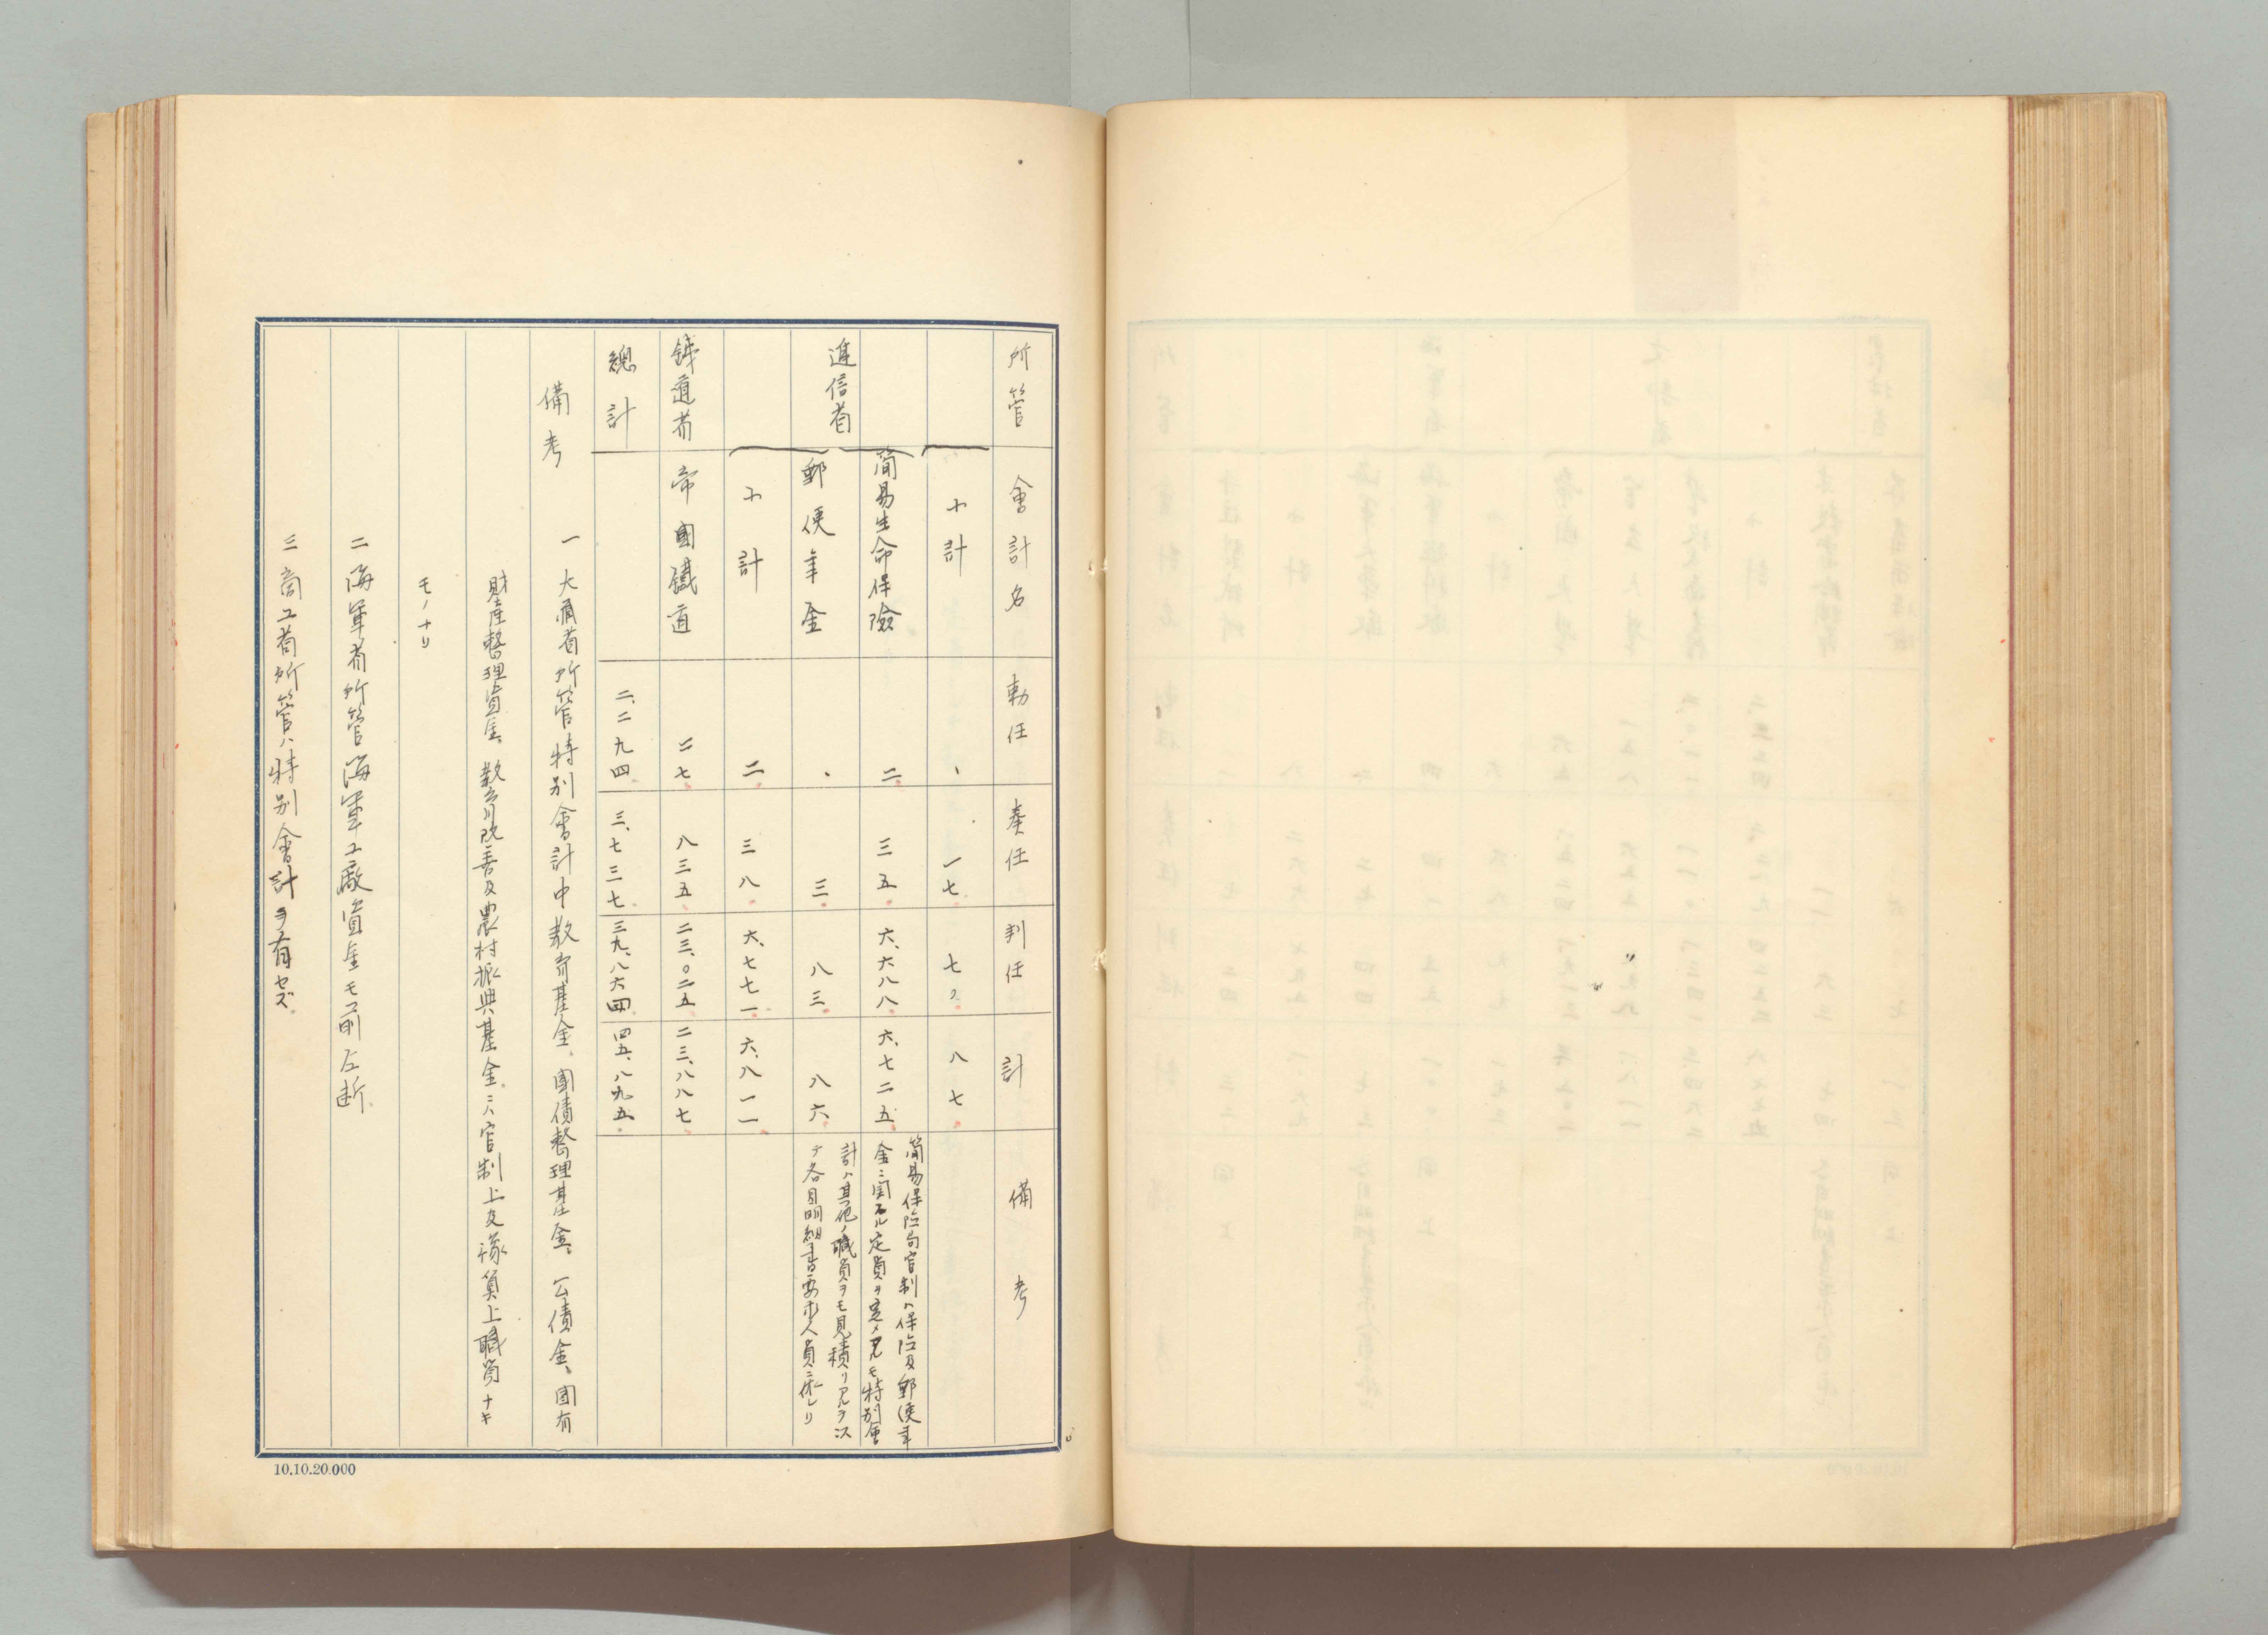 所管 會計名 勅任 奏任 判任 計 備考
小計 、 一七 七〇 八七
逓信省 簡易生命保險 二 三五 六、六八八 六、七二五
簡易保險局官制ハ保險及郵便年
金ニ関スル定員ヲ定メアルモ特別會
計ハ其他ノ職員ヲモ見積リアルヲ以
テ各目明細書要求人員ニ依レリ
郵便年金 、 三 八三 八六
小計 二 三八 六、七七一 六、八一一
鉄道省 帝國鐵道 二七 八三五 二三、〇二五 二三、八八七
總計 二、二九四 三、七三七 三九、八六四 四五、八九五
備考
一 大蔵省所管特別會計中教育基金、國債整理基金、公債金、國有
財産整理資金、教育改善及農村振興基金ニハ官制上及豫算上職員ナキ
モノナリ
二 海軍省所管海軍工廠資金モ前仝断
三 商工省所管ハ特別會計ヲ有セズ
10.10.20.000